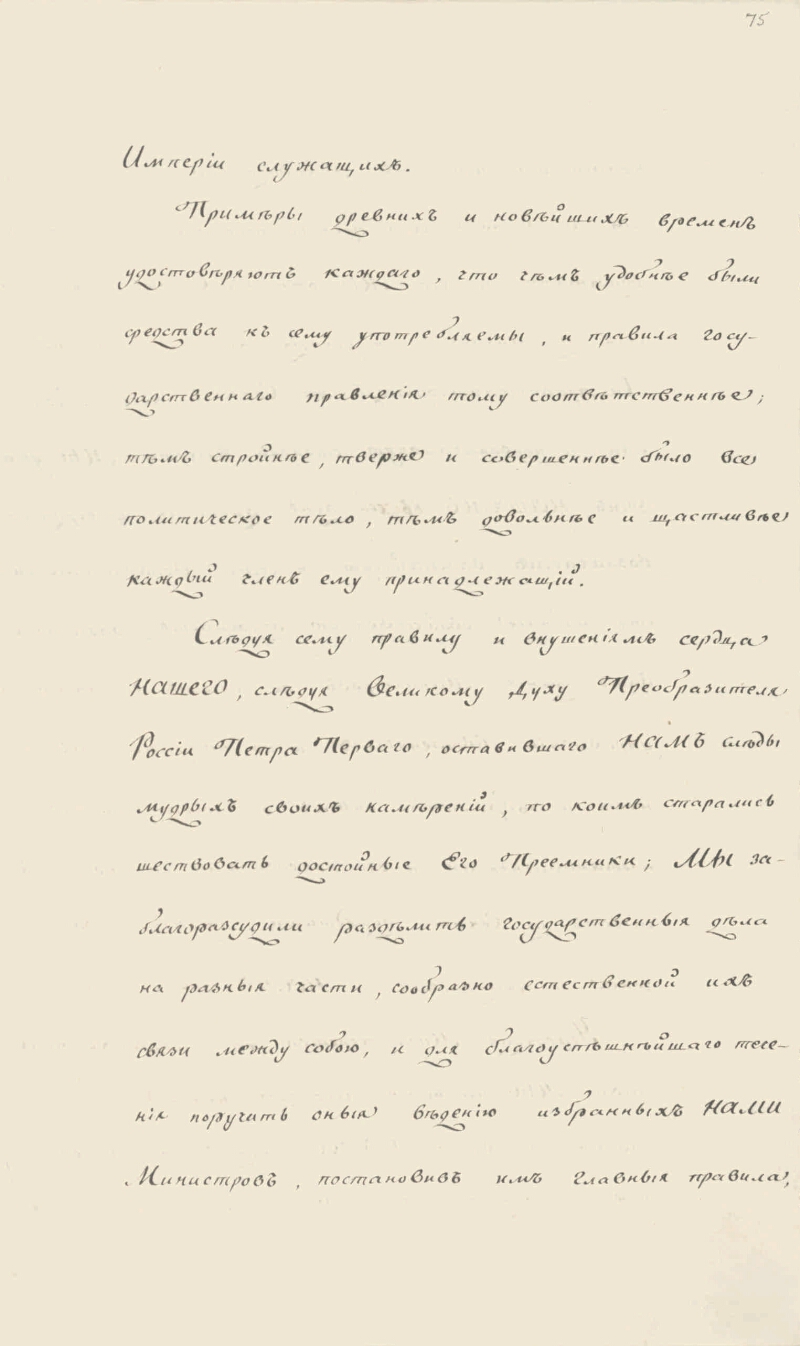 75
Имперіи служащихъ.
Примѣры древнихъ и новѣйшихъ временъ
удостовѣряютъ каждаго, что чѣмъ удобнѣе были
средства къ сему употребляемы, и правила госу-
дарственнаго правленія тому соотвѣтственнѣе;
тѣмъ стройнѣе, тверже и совершеннѣе было все
политическое тѣло, тѣмъ довольнѣе и щастливѣе
каждый членъ ему принадлежащій.
Слѣдуя сему правилу и внушеніямъ сердца
НАШЕГО, слѣдуя Великому Духу Преобразителя
Россіи Петра Перваго, оставившаго НАМЪ слѣды
мудрыхъ своихъ намѣреній, по коимъ старались
шествовать достойные Его Преемники; МЫ за-
благоразсудили раздѣлить государственныя дѣла
на разныя части, сообразно естественной ихъ
связи между собою, и для благоуспѣшнѣйшаго тече-
нія поручить оныя вѣденію избранныхъ НАМИ
Министровъ, постановивъ имъ главныя правила,